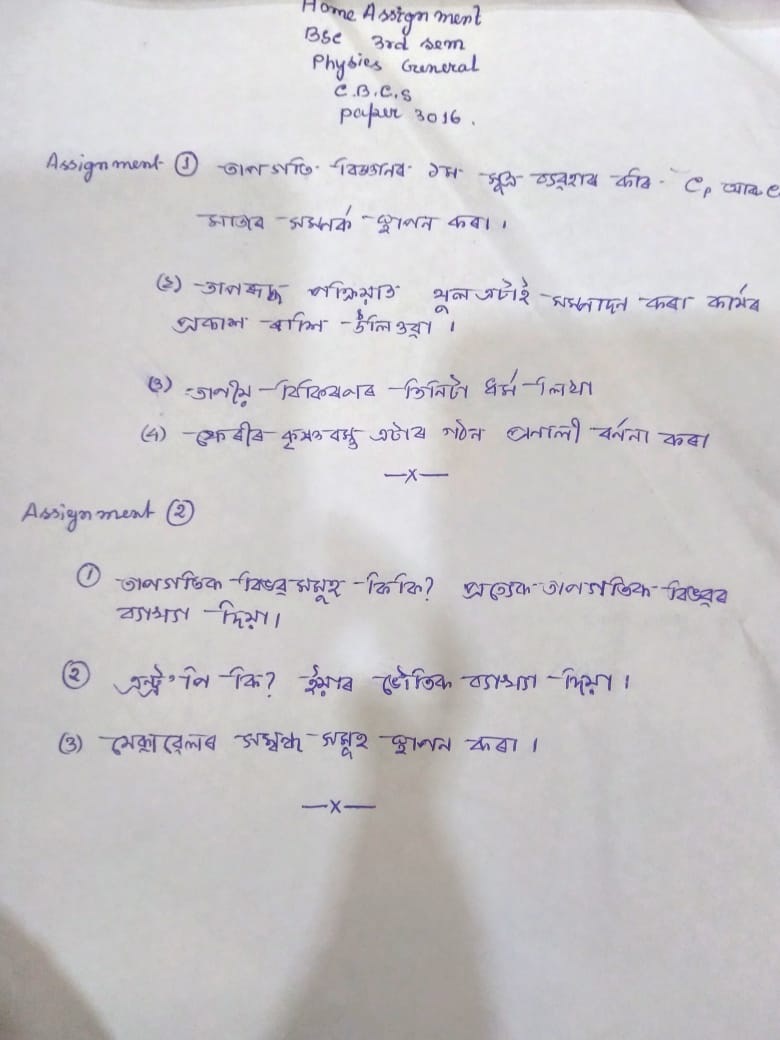 Home Assignment
Bsc 3rd sem
Physics General
C.B.C.S
paper 3016.
Assignment ① তাপগতি বিজ্ঞানৰ ১ম সূত্ৰ ব্যৱহাৰ কৰি Cp আৰু C
মাজৰ সম্পৰ্ক স্থাপন কৰা।
(২) তাপৰুদ্ধ প্ৰক্ৰিয়াত থুল এটাই সম্পাদন কৰা কাৰ্যৰ
প্ৰকাশ ৰাশি উলিওৱা।
(৩) তাপীয় বিকিৰণৰ তিনিটা ধৰ্ম লিখা
(4) ফেৰীৰ কৃষ্ণবস্তু এটাৰ গঠন প্ৰনালী বৰ্ননা কৰা
—x—
Assignment ②
① তাপগতিক বিভৱ সমূহ কি কি? প্ৰত্যেক তাপগতিক বিভৱৰ
ব্যাখ্যা দিয়া।
② এনট্ৰ'পি কি? ইয়াৰ ভৌতিক ব্যাখ্যা দিয়া।
(৩) মেক্সৱেলৰ সম্বন্ধ সমূহ স্থাপন কৰা।
—x—